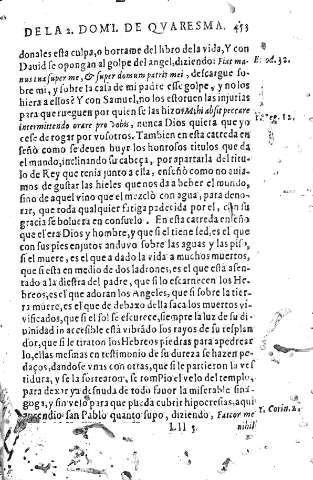 DE LA 2. DOMI. DE QVARESMA. 453
donales esta culpa, o borrame del libro de la vida, Y con
Dauid se opongan al golpe del angel, diziendo: Fiat ma-
nus tua super me, & super domum patris mei, descargue so-
bre mi, y sobre la casa de mi padre esse golpe, y no los
hiera a ellos? Y con Samuel, no les estoruen las injurias
para que rueguen por quien se las hizo: Mihi absit peccare
intermittendo orare pro vobis, nunca Dios quiera que yo
cese de rogar por vosotros. Tambien en esta catreda en-
señò como se deuen huyr los honrosos titulos que da
el mundo, inclinando su cabeça, por apartarla del titu-
lo de Rey que tenia junto a ella, enseñò como no auia-
mos de gustar las hieles que nos da a beber el mundo,
sino de aquel vino que el mezclò con agua, para deno-
tar, que toda qualquier fatiga padecida por el, con su
gracia se boluera en consuelo. En esta catreda enseño
que el era Dios y hombre, y que si el tiene sed, es el que
con sus pies enjutos anduvo sobre las aguas y las piso,
si el muere, es el que a dado la vida a muchos muertos,
que si esta en medio de dos ladrones, es el que esta asen-
tado a la diestra del padre, que si lo escarnecen los He-
breos, es el que adoran los Angeles, que si sobre la tier-
ra muere, es el que de debaxo della saca los muertos vi-
uificados, que si el sol se escurece, siempre la luz de su di-
uinidad inaccesible està vibrãdo los rayos de su resplan-
dor, que si le tiraron los Hebreos piedras para apedrear
lo, ellas mesmas en testimonio de su dureza se hazen pe-
daços, dandose vnas con otras, que si le partieron la ves
tidura, y se la sortearon, se rompio el velo del templo,
para dexar ya desnuda de todo fauor la miserable sina-
goga, y sin velo para que pueda cubrir hipocresias, aqui
aprendio san Pablo quanto supo, diziendo, Fateor me
Lll 3. nihil
Exod. 32.
1. Reg. 12.
1. Corin. 2.